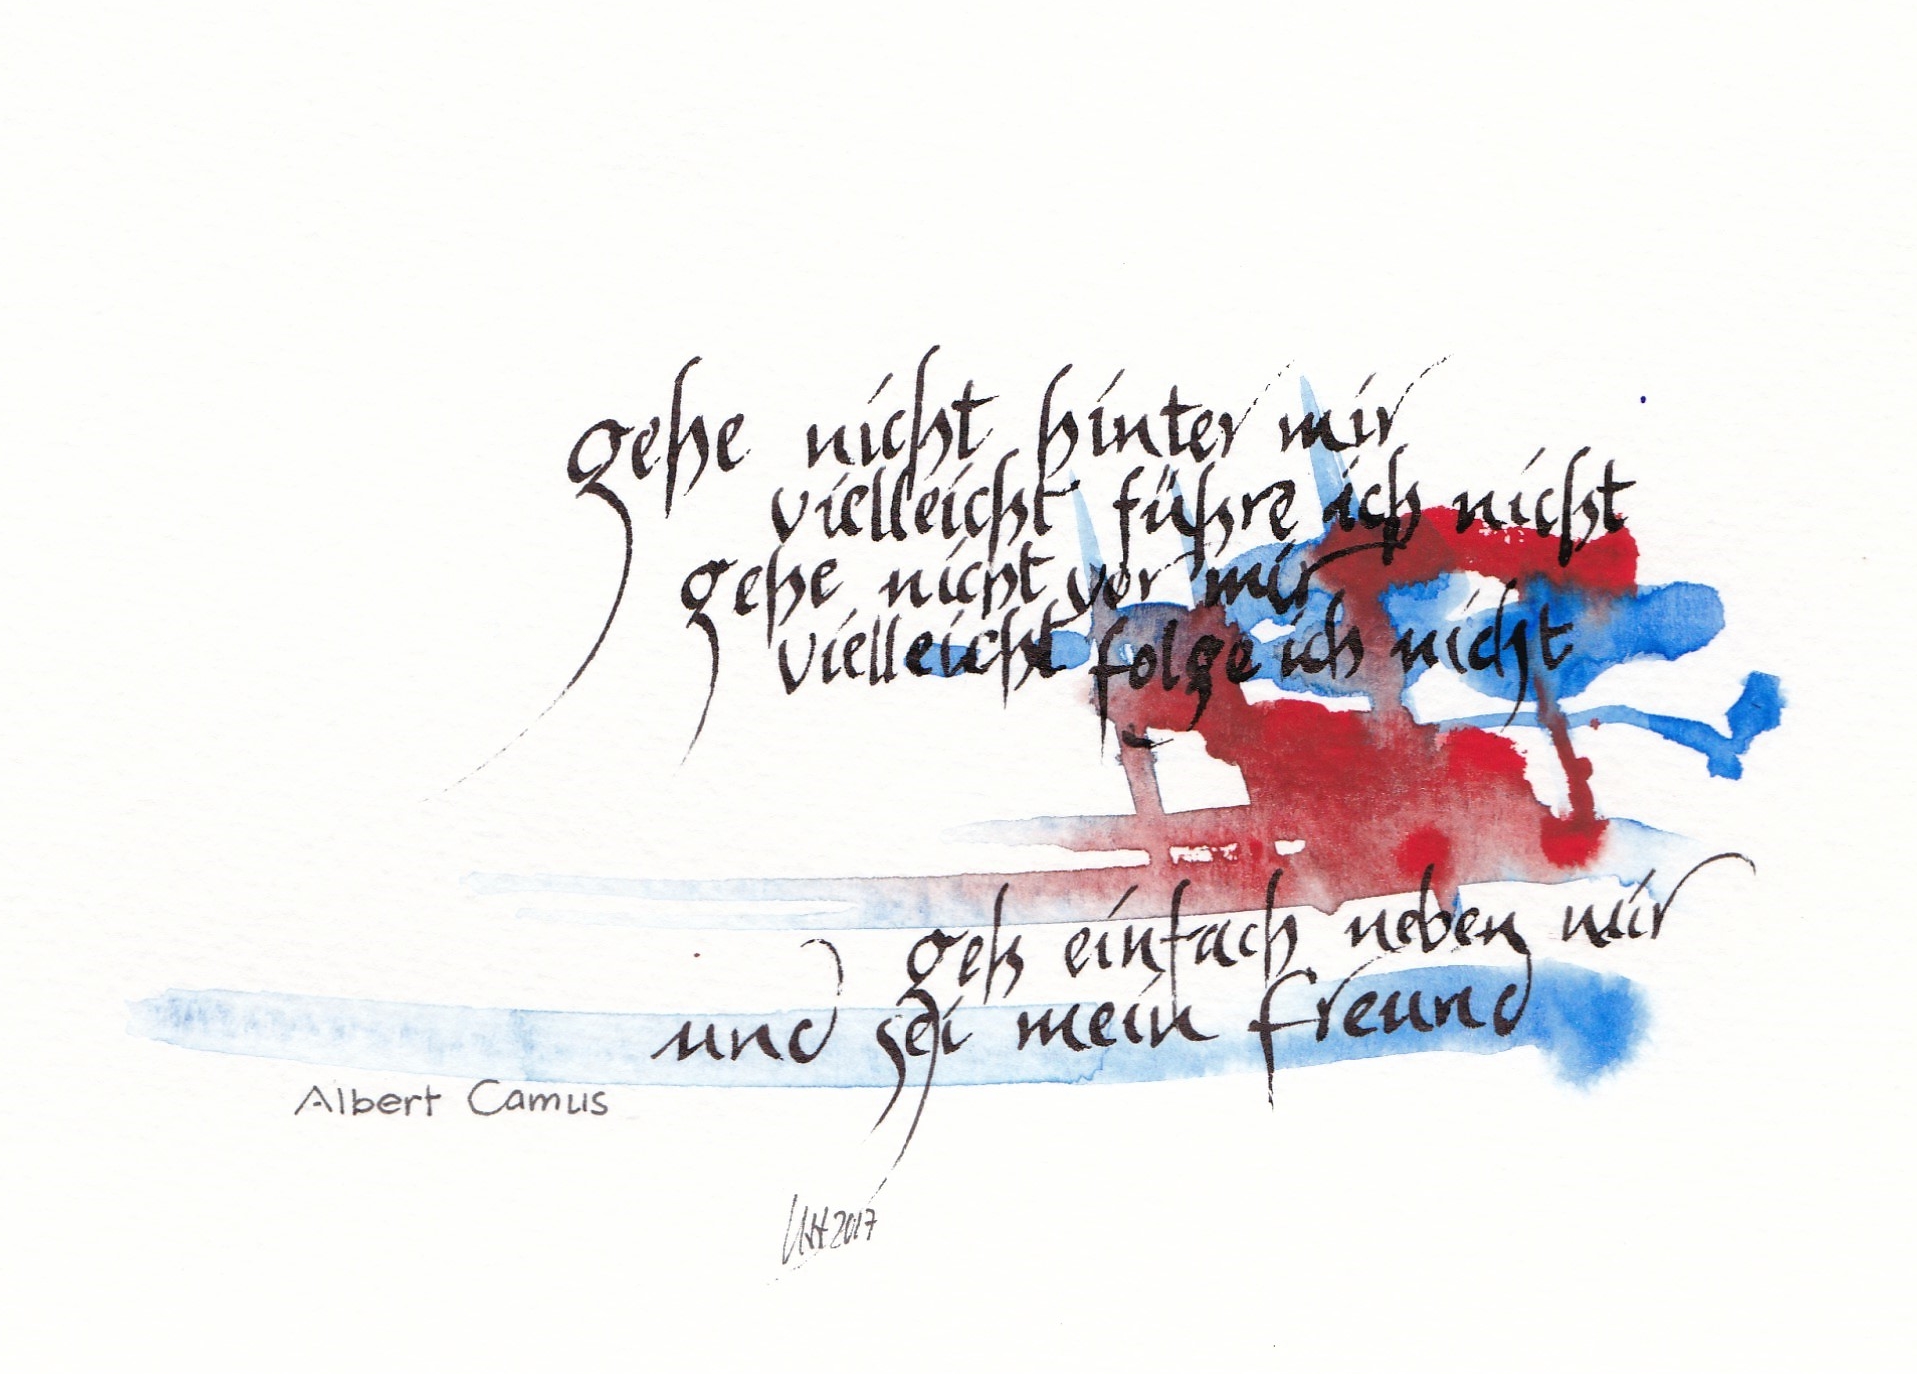 gehe nicht hinter mir
vielleicht führe ich nicht
gehe nicht vor mir
vielleicht folge ich nicht
geh einfach neben mir
und sei mein freund
Albert Camus
2017